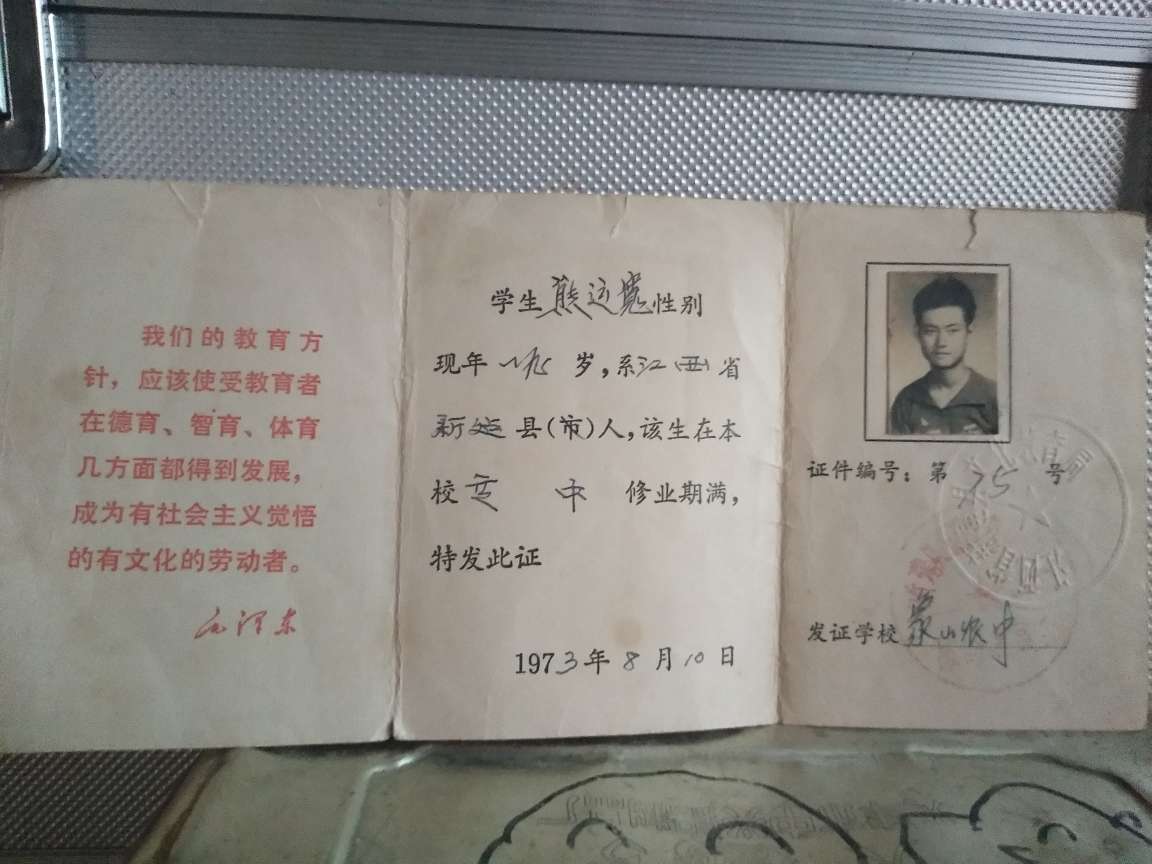 我们的教育方
针，应该使受教育者
在德育、智育、体育
几方面都得到发展，
成为有社会主义觉悟
的有文化的劳动者。
毛泽东
学生熊运宽性别
现年 岁，系江西省
新建县（市）人，该生在本
校高 中 修业期满，
特发此证
1973年8月10日
证件编号：第 号
发证学校象山农中